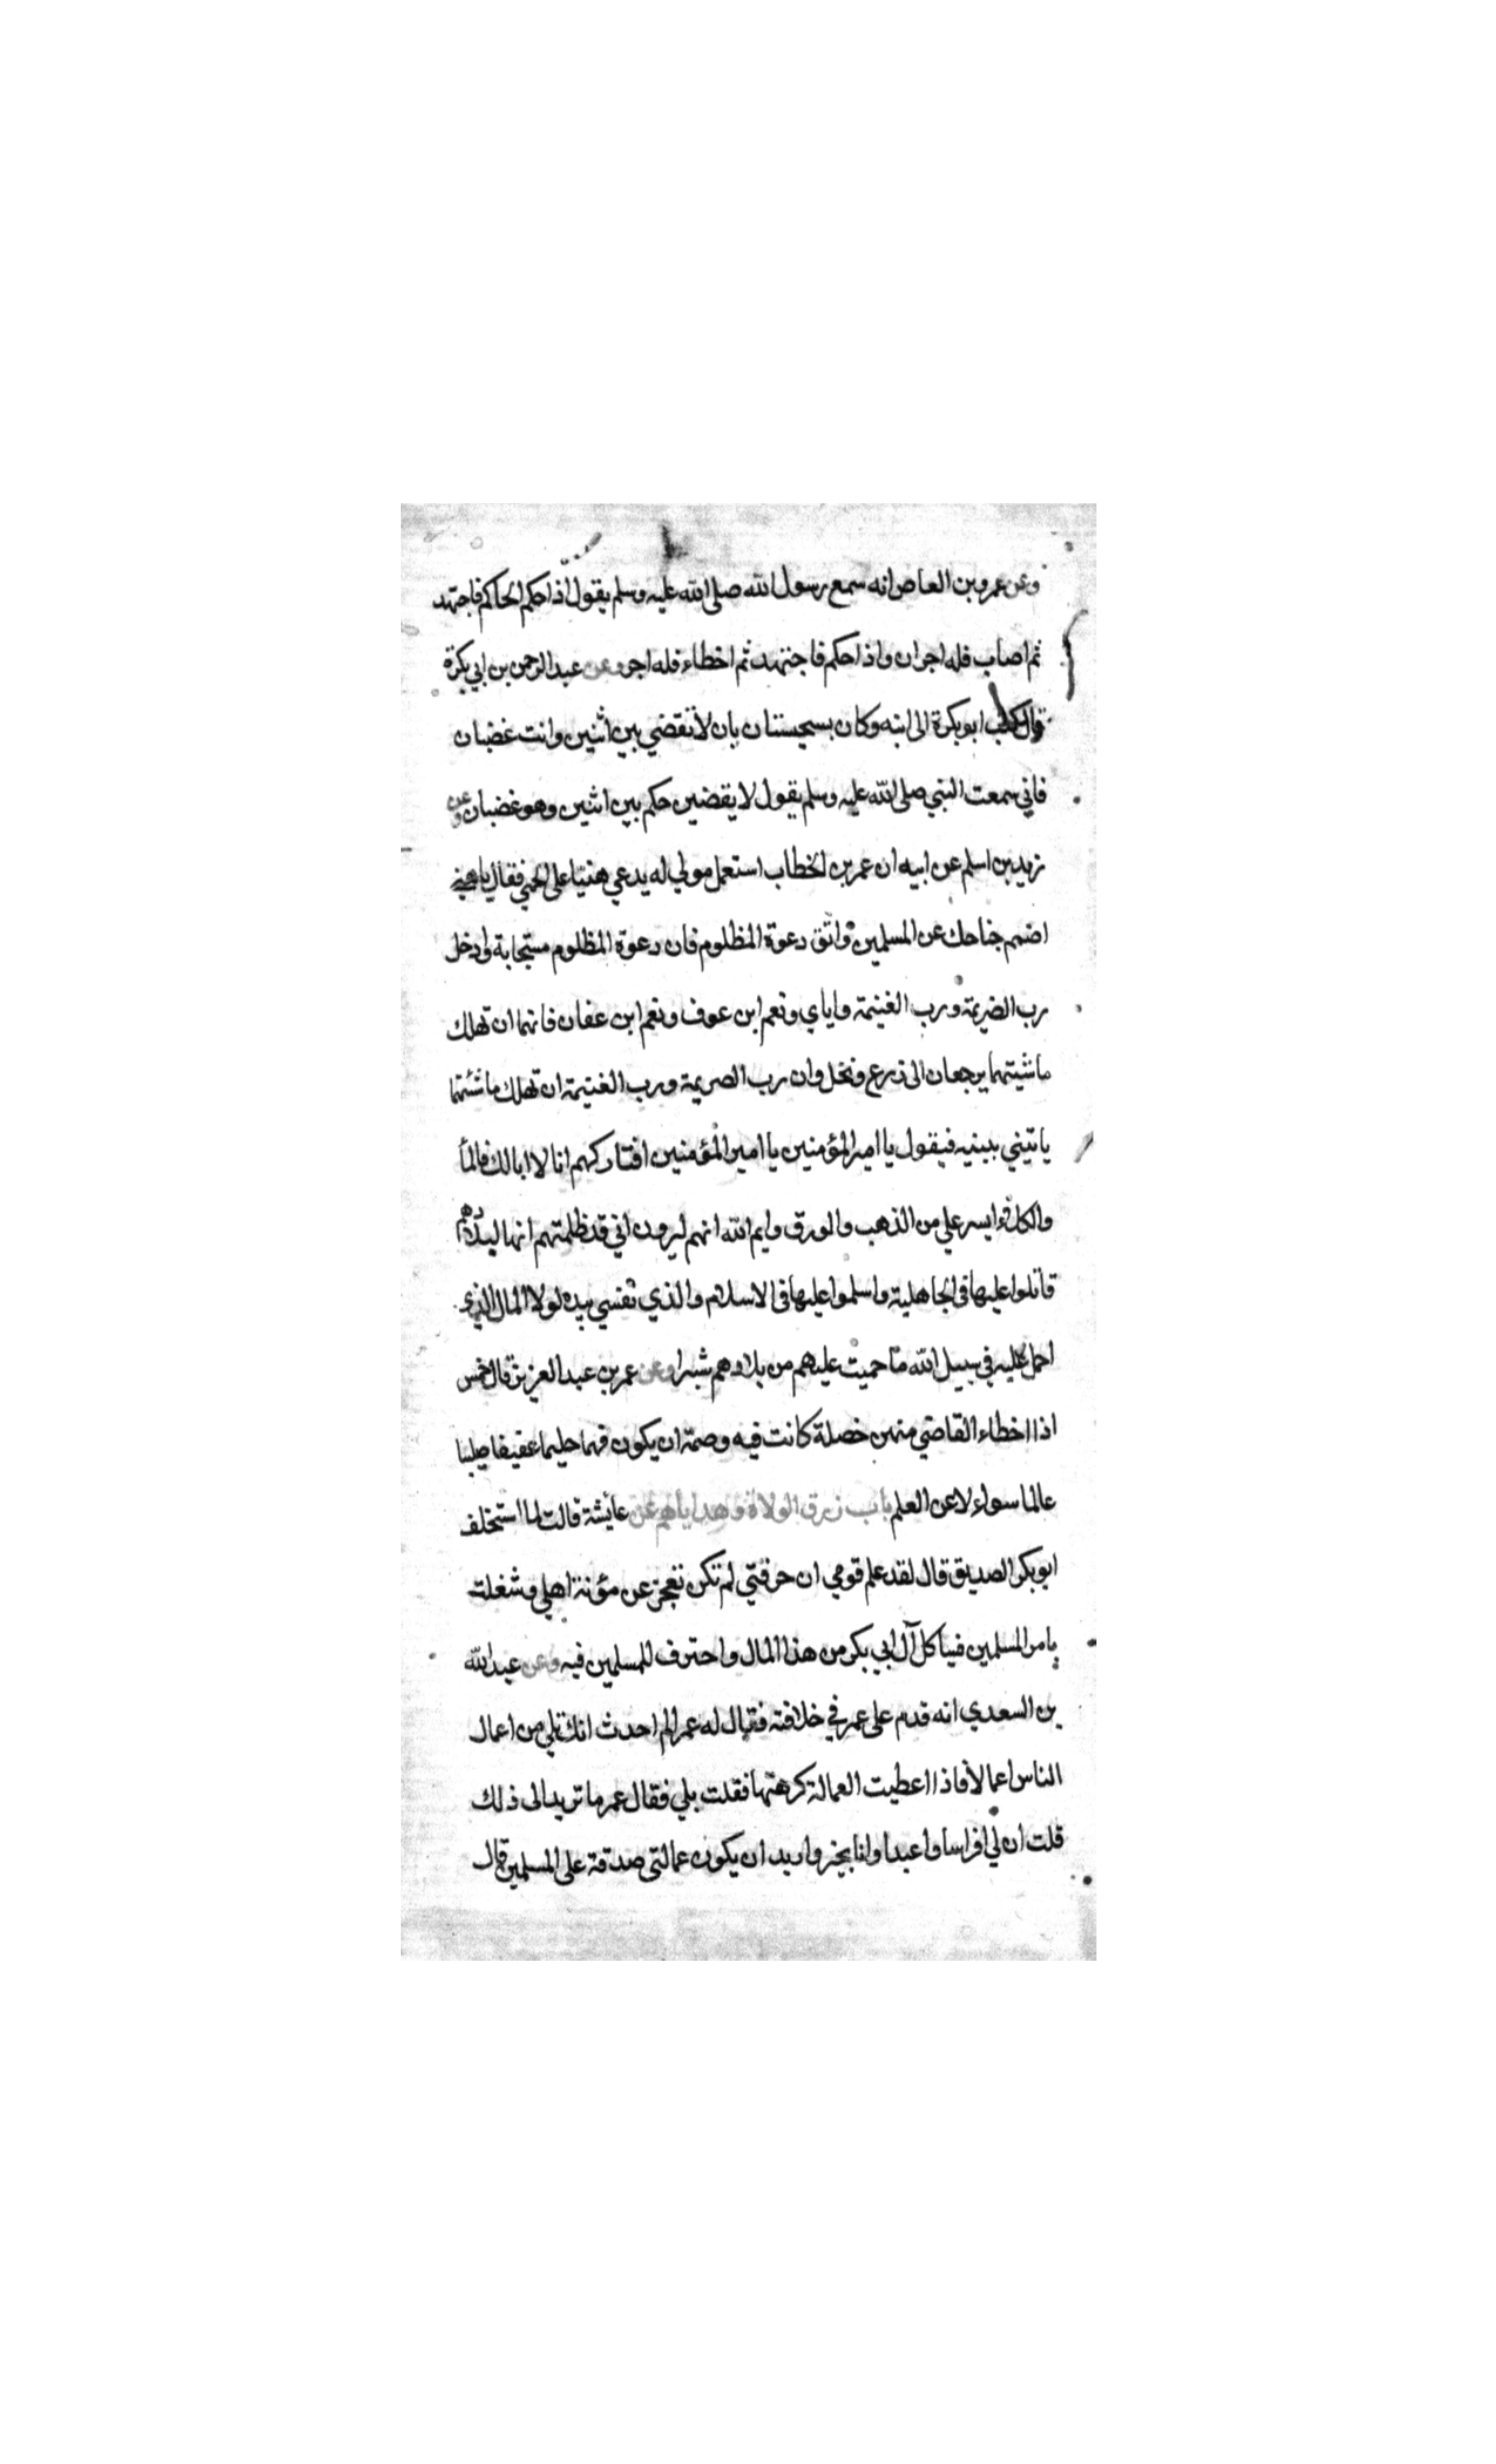 وعن عمرو بن العاص انه سمع رسول الله صلى الله عليه وسلم يقول اذا حكم الحاكم فاجتهد
ثم اصاب فله اجران واذا حكم فاجتهد ثم اخطاء فله اجر وعن عبد الرحمن بن ابي بكرة
قال كتب ابو بكرة الى ابنه وكان بسجستان بان لا تقضي بين اثنين وانت غضبان
فاني سمعت النبي صلى الله عليه وسلم يقول لا يقضين حكم بين اثنين وهو غضبان وعن
زيد بن اسلم عن ابيه ان عمر بن الخطاب استعمل مولي له يدعي هنيا على الحمي فقال يا هني
اضمم جناحك عن المسلمين واتق دعوة المظلوم فان دعوة المظلوم مستجابة وادخل
رب الصريمة ورب الغنيمة واياي ونعم ابن عوف ونعم ابن عفان فانهما ان تهلك
ماشيتهما يرجعان الى زرع ونخل وان رب الصريمة ورب الغنيمة ان تهلك ماشيتهما
ياتيني ببنيه فيقول يا امير المؤمنين يا امير المؤمنين افتاركهم انا لا ابالك فالمأ
والكلاء ايسر علي من الذهب والورق وايم الله انهم ليرون اني قد ظلمتهم انها لبلادهم
قاتلوا عليها في الجاهلية واسلموا عليها في الاسلام والذي نفسي بيده لولا المال الذي
احمل عليه في سبيل الله ما حميت عليهم من بلادهم شبرا وعن عمر بن عبد العزيز قال خمس
اذا اخطاء القاضي منهن خصلة كانت فيه وصمة ان يكون فهما حليما عفيفا صليبا
عالما سولا عن العلم باب رزق الولاة وهداياهم عن عايشة قالت لما استخلف
ابو بكر الصديق قال لقد علم قومي ان حرفتي لم تكن تعجز عن مؤنة اهلي وشغلت
بامر المسلمين فسياكل آل ابي بكر من هذا المال واحترف للمسلمين فيه وعن عبد الله
بن السعدي انه قدم على عمر في خلافته فقال له عمر الم احدث انك تلي من اعمال
الناس اعمالا فاذا اعطيت العمالة كرهتها فقلت بلي فقال عمر ما تريد الى ذلك
قلت ان لي افراسا واعبدا وانا بخير واريد ان يكون عمالتي صدقة على المسلمين قال